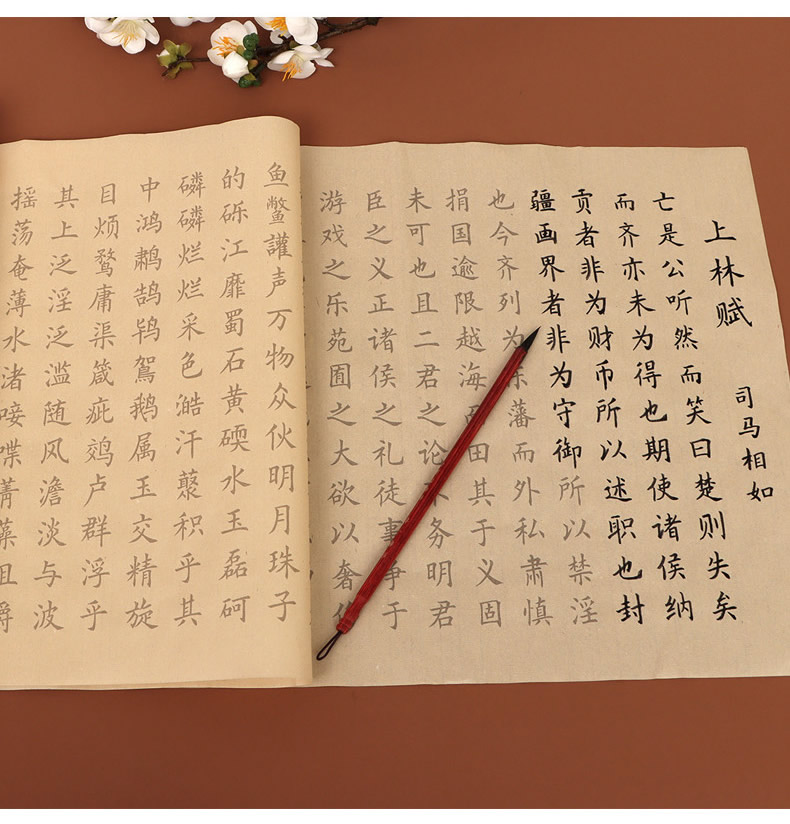 上林赋
司马相如
亡是公听然而笑曰楚则失矣
而齐亦未为得也期使诸侯纳
贡者非为财币所以述职也封
疆画界者非为守御所以禁淫
也今齐列为东藩而外私肃慎
捐国逾限越海而田其于义固
未可也且二君之论不务明君
臣之义正诸侯之礼徒事争于
游戏之乐苑囿之大欲以奢侈
鱼鳖讙声万物众伙明月珠子
的砾江靡蜀石黄碝水玉磊砢
磷磷烂烂采色澔汗藂积乎其
中鸿鹔鹄鸨鴐鹅属玉交精旋
目烦鹜庸渠箴疵鵁卢群浮乎
其上泛淫泛滥随风澹淡与波
摇荡奄薄水渚唼喋菁藻咀嚼